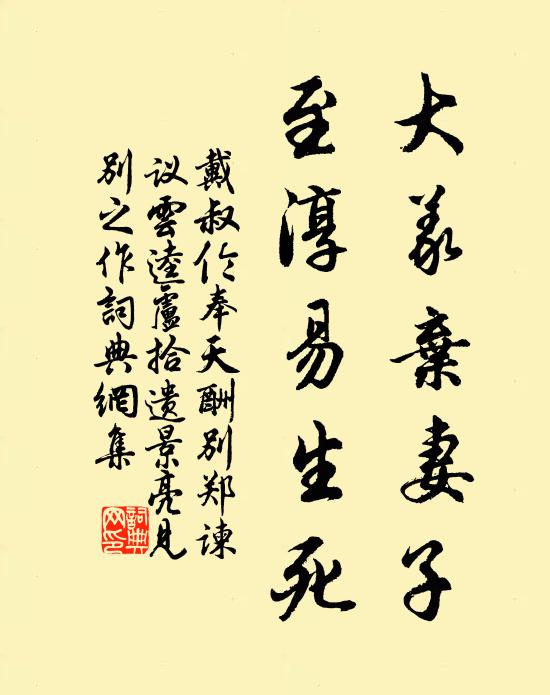 大義棄妻子
至淳易生死
戴叔伦奉天酬别郑谏
议雲逵盧拾遗景亮見
别之作詞典網集
詞典网印